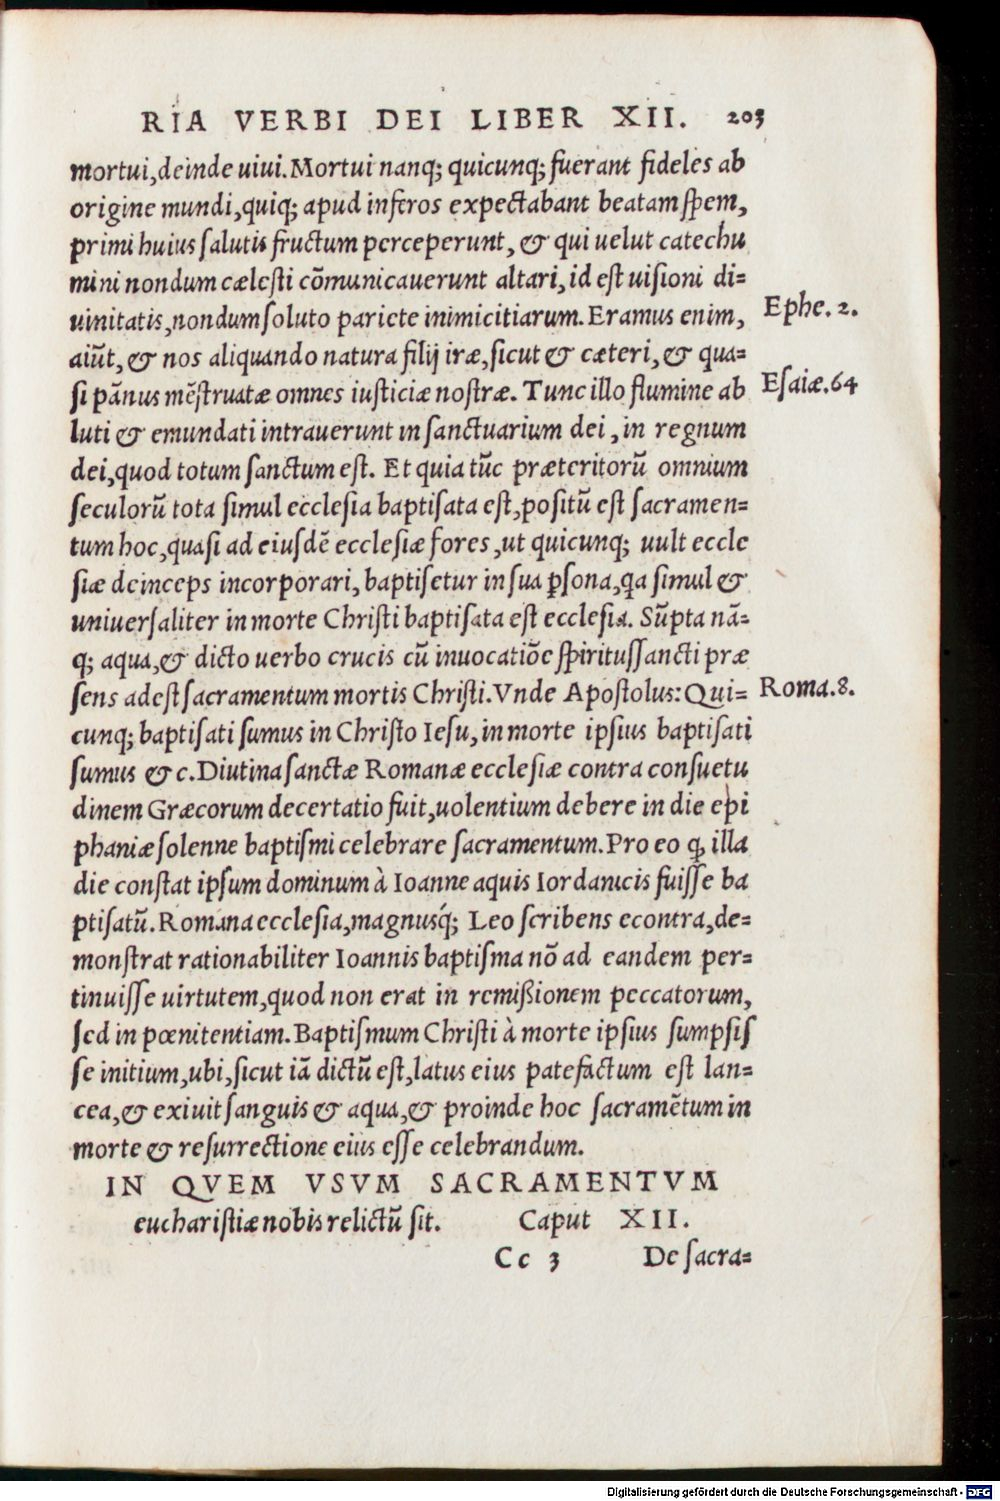 RIA VERBI DEI LIBER XII. 203
mortui, deinde uiui. Mortui nanq; quicunq; fuerant fideles ab
origine mundi, quiq; apud inferos expectabant beatam spem,
primi huius salutis fructum perceperunt, & qui uelut catechu
mini nondum cælesti cōmunicauerunt altari, id est uisioni di=
uinitatis, nondum soluto pariete inimicitiarum. Eramus enim,
Ephe. 2.
aiūt, & nos aliquando natura filij iræ, sicut & cæteri, & qua=
si pānus mēstruatæ omnes iusticiæ nostræ. Tunc illo flumine ab
Esaiæ. 64
luti & emundati intrauerunt in sanctuarium dei, in regnum
dei, quod totum sanctum est. Et quia tūc præteritorū omnium
seculorū tota simul ecclesia baptisata est, positū est sacramen=
tum hoc, quasi ad eiusdē ecclesiæ fores, ut quicunq; uult eccle
siæ deinceps incorporari, baptisetur in sua ꝑsona, q̃a simul &
uniuersaliter in morte Christi baptisata est ecclesia. Sūpta nã=
q; aqua, & dicto uerbo crucis cū inuocatiōe spiritussancti præ
sens adest sacramentum mortis Christi. Vnde Apostolus: Qui=
Roma. 8.
cunq; baptisati sumus in Christo Iesu, in morte ipsius baptisati
sumus & c. Diutina sanctæ Romanæ ecclesiæ contra consuetu
dinem Græcorum decertatio fuit, uolentium debere in die epi
phaniæ solenne baptismi celebrare sacramentum. Pro eo ꝙ illa
die constat ipsum dominum à Ioanne aquis Iordanicis fuisse ba
ptisatū. Romana ecclesia, magnusq́; Leo scribens econtra, de=
monstrat rationabiliter Ioannis baptisma nō ad eandem per=
tinuisse uirtutem, quod non erat in remißionem peccatorum,
sed in pœnitentiam. Baptismum Christi à morte ipsius sumpsis
se initium, ubi, sicut iā dictū est, latus eius patefactum est lan=
cea, & exiuit sanguis & aqua, & proinde hoc sacramētum in
morte & resurrectione eius esse celebrandum.
IN QVEM VSVM SACRAMENTVM
eucharistiæ nobis relictū sit. Caput XII.
Cc 3 De sacra=
Digitalisierung gefördert durch die Deutsche Forschungsgemeinschaft - DFG